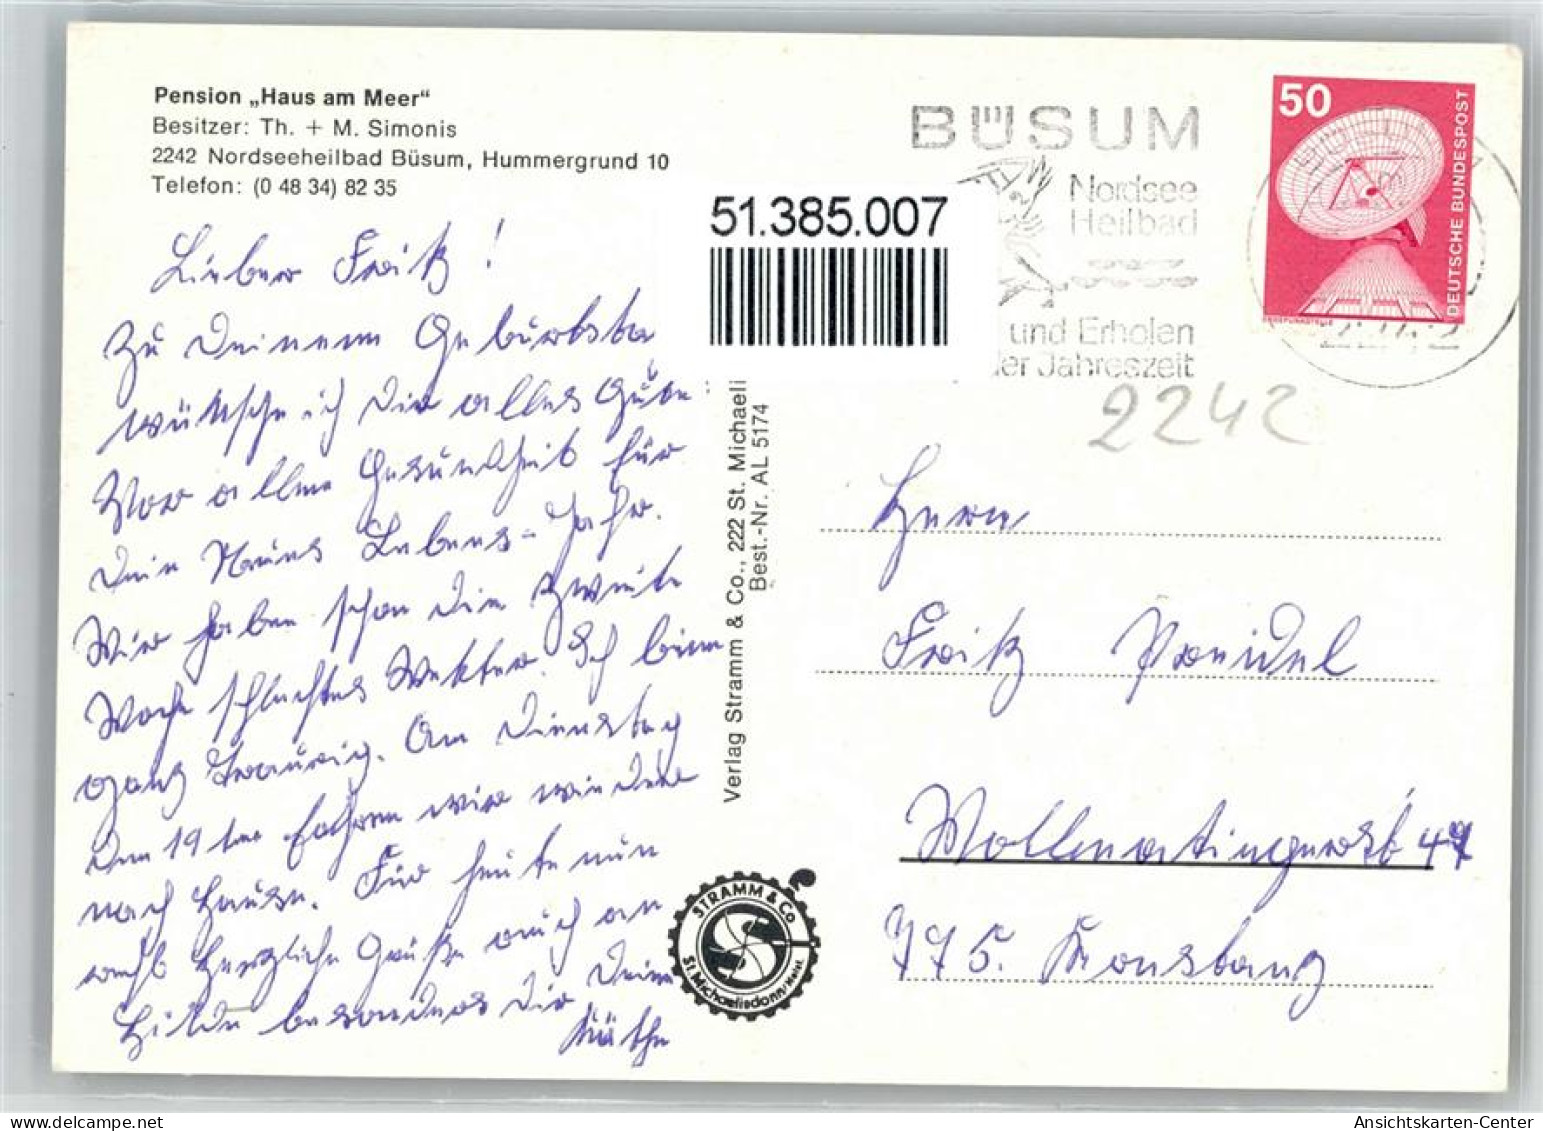 Pension „Haus am Meer“
Besitzer: Th. + M. Simonis
2242 Nordseeheilbad Büsum, Hummergrund 10
Telefon: (0 48 34) 82 35
Lieber Fritz!
Zu Deinem Geburtsta
wünsche ich Dir alles Gute.
Vor allem Gesundheit für
Dein Neues Lebens-Jahr.
Wir haben schon die zweite
Woche schlechtes Wetter. Ich bin
ganz traurig. Am Dienstag
den 19ten fahren wir wieder
nach Hause. Für heute nun
recht herzliche Grüße auch an
Hilde besonders Dir Deine
Käthe
51.385.007
Verlag Stramm & Co., 222 St. Michaeli
Best.-Nr. AL 5174
STRAMM & Co
St. Michaelisdonn/Holst.
BÜSUM
Nordsee
Heilbad
und Erholen
der Jahreszeit
50
DEUTSCHE BUNDESPOST
ERDEFUNKSTELLE
2242
Herrn
Fritz Preidel
Wollmatingerstr 47
775. Konstanz
Ansichtskarten-Center